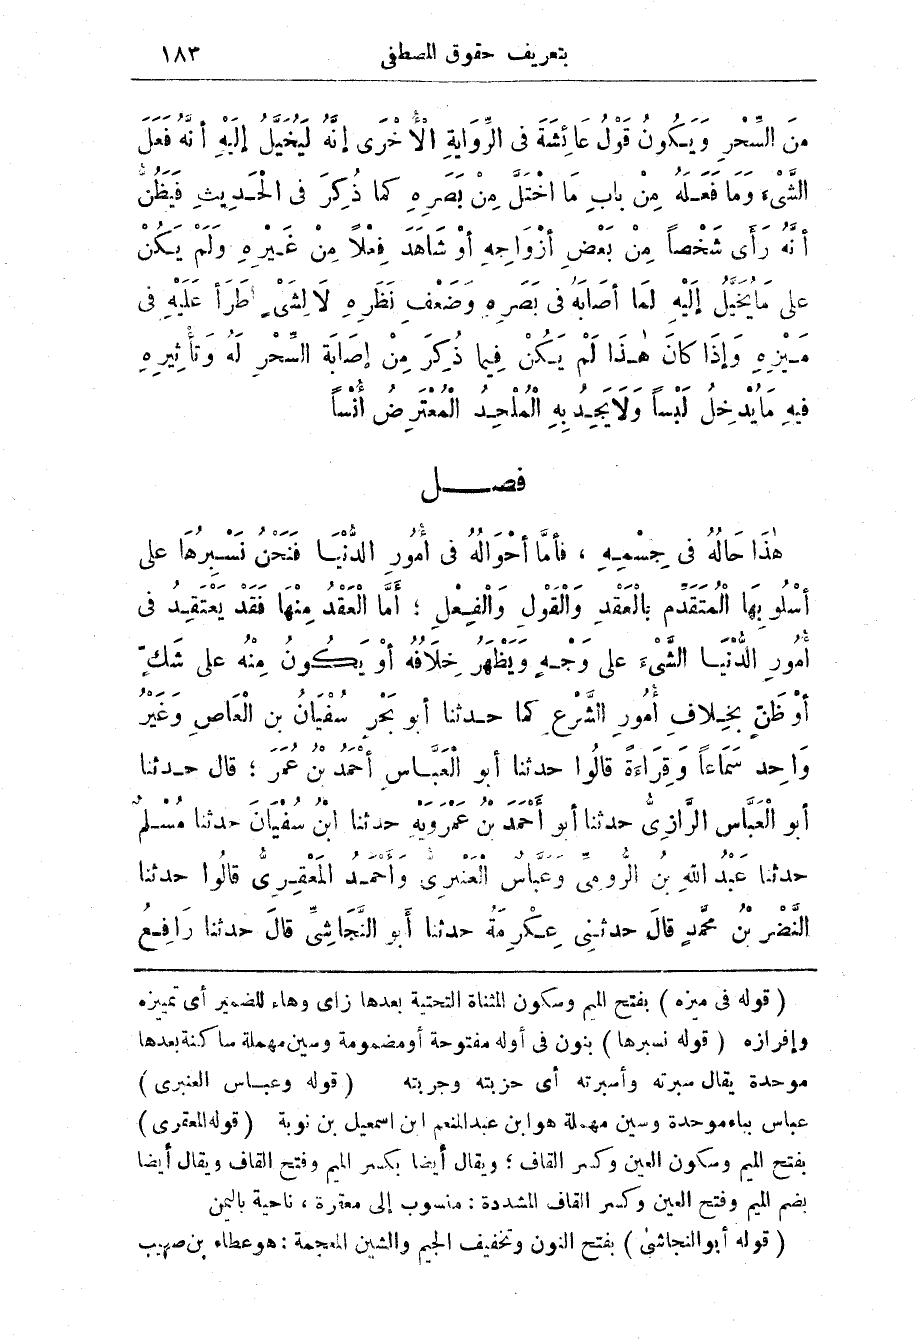 بتعريف حقوق المصطفى ١٨٣
مِنَ السِّحْرِ وَيَكُونُ قَوْلُ عَائِشَةَ فى الرِّوَايَةِ الْأُخْرَى إنَّهُ لَيُخَيَّلُ إلَيْهِ أنَّهُ فَعَلَ
الشَّىْءَ وَمَا فَعَلَهُ مِنْ بابِ مَا اخْتَلَّ مِنْ بَصَرِهِ كما ذُكِرَ فى الْحَدِيثِ فَيَظُنُّ
أنَّهُ رَأَى شَخْصاً مِنْ بَعْضِ أزْوَاجِهِ أوْ شَاهَدَ فِعْلاً مِنْ غَيْرِهِ وَلَمْ يَكُنْ
على مَا يُخَيَّلُ إلَيْهِ لمَا أصَابَهُ فى بَصَرِهِ وَضَعْفِ نَظَرِهِ لَا لِشَىْءٍ طَرَأَ عَلَيْهِ فى
مَيْزِهِ وَإذَا كانَ هٰذَا لَمْ يَكُنْ فِيما ذُكِرَ مِنْ إصَابَةِ السِّحْرِ لَهُ وَتَأْثِيرِهِ
فيهِ مَا يُدْخِلُ لَبْساً وَلَا يَجِدُ بِهِ الْمُلْحِدُ الْمُعْتَرِضُ أُنْساً
فصل
هٰذَا حَالُهُ فى جِسْمِهِ ، فأمَّا أحْوَالُهُ فى أُمُورِ الدُّنْيَا فَنَحْنُ نَسْبِرُهَا على
أسْلُوبِهَا الْمُتَقَدِّمِ بالْعَقْدِ وَالْقَوْلِ وَالْفِعْلِ ؛ أَمَّا الْعَقْدُ مِنْهَا فَقَدْ يَعْتَقِدُ فى
أُمُورِ الدُّنْيَا الشَّىْءَ على وَجْهٍ وَيَظْهَرُ خِلَافُهُ أوْ يَكُونُ مِنْهُ على شَكٍّ
أوْ ظَنٍّ بِخِلافِ أُمُورِ الشَّرْعِ كما حدثنا أبو بَحْرٍ سُفْيَانُ بن الْعَاصِ وَغَيْرُ
وَاحِد سَمَاعاً وَقِرَاءَةً قالُوا حدثنا أبو الْعَبَّاسِ أحْمَدُ بنُ عُمَرَ ؛ قال حدثنا
أبو الْعَبَّاسِ الرَّازِىُّ حدثنا أبو أَحْمَدَ بنُ عَمْرَوَيْهِ حدثنا ابْنُ سُفْيَانَ حدثنا مُسْلِمٌ
حدثنا عَبْدُ اللهِ بنُ الرُّومِىِّ وَعَبَّاسٌ الْعَنْبَرِىُّ وَأَحْمَدُ المَعْقِرِىُّ قالُوا حدثنا
النَّضْرُ بْنُ مُحَمَّدٍ قالَ حدثنى عِكْرِمَةُ حدثنا أبو النَّجَاشِىِّ قالَ حدثنا رَافِعُ
( قوله فى ميزه ) بفتح الميم وسكون المثناة التحتية بعدها زاى وهاء للضمير أى تمييزه
وإفرازه ( قوله نسبرها ) بنون فى أوله مفتوحة أو مضمومة وسين مهملة ساكنة بعدها
موحدة يقال سبرته وأسبرته أى حزبته وجربته ( قوله وعباس العنبرى )
عباس بباء موحدة وسين مهملة هو ابن عبدالمنعم ابن اسمعيل بن نوبة ( قوله المعقرى )
بفتح الميم وسكون العين وكسر القاف ؛ ويقال أيضا بكسر الميم وفتح القاف ويقال أيضا
بضم الميم وفتح العين وكسر القاف المشددة : منسوب إلى معقرة ، ناحية باليمن
( قوله أبو النجاشى ) بفتح النون وتخفيف الجيم والشين المعجمة : هو عطاء بن صهيب